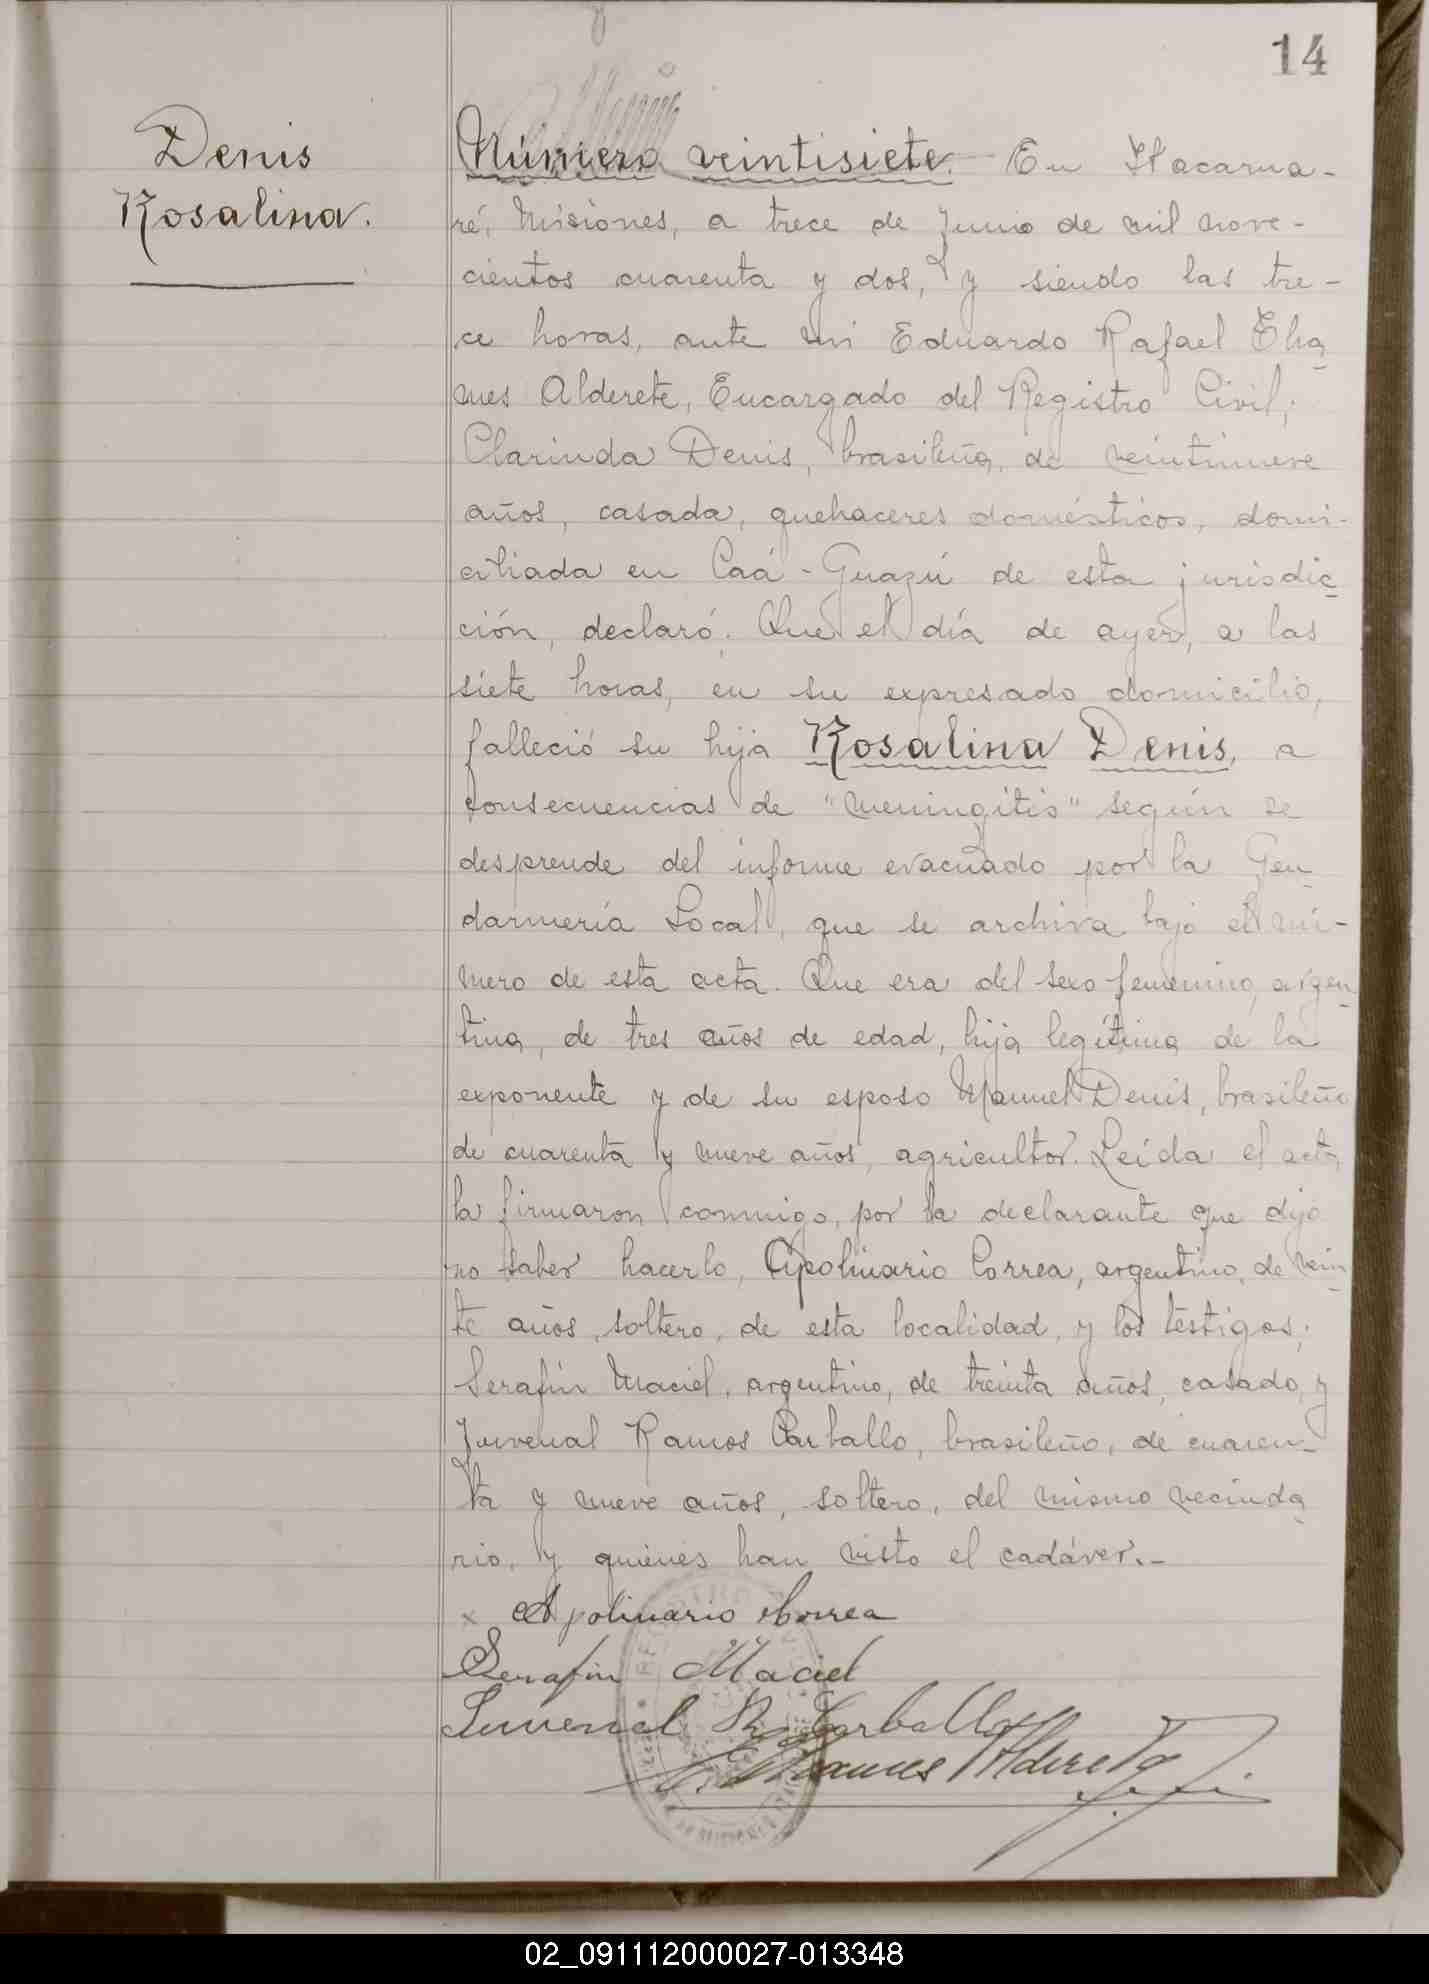 14
Denis
Rosalina.
Número veintisiete. En Itacarua-
ré, Misiones, a trece de Junio de mil nove-
cientos cuarenta y dos, y siendo las tre-
ce horas, ante mi Eduardo Rafael Tha
mes Alderete, Encargado del Registro Civil,
Clarinda Denis, brasileña, de veintinueve
años, casada, quehaceres domésticos, domi-
ciliada en Caá-Guazú de esta jurisdic
ción, declaró: Que el día de ayer, a las
siete horas, en su expresado domicilio,
falleció su hija Rosalina Denis, a
consecuencias de "meningitis" según se
desprende del informe evacuado por la Gen
darmería Local, que se archiva bajo el nú-
mero de esta acta. Que era del sexo femenino, argen
tina, de tres años de edad, hija legítima de la
exponente y de su esposo Manuel Denis, brasileño
de cuarenta y nueve años, agricultor. Leída el acta
la firmaron conmigo, por la declarante que dijo
no saber hacerlo, Apolinario Correa, argentino, de vein
te años, soltero, de esta localidad, y los testigos,
Serafín Maciel, argentino, de treinta años, casado, y
Juvenal Ramos Carballo, brasileño, de cuaren-
ta y nueve años, soltero, del mismo vecinda
rio, y quienes han visto el cadáver.-
x Apolinario Correa
Serafin Maciel
Juvenal R. Carballo
Thames Alderete
02_091112000027-013348